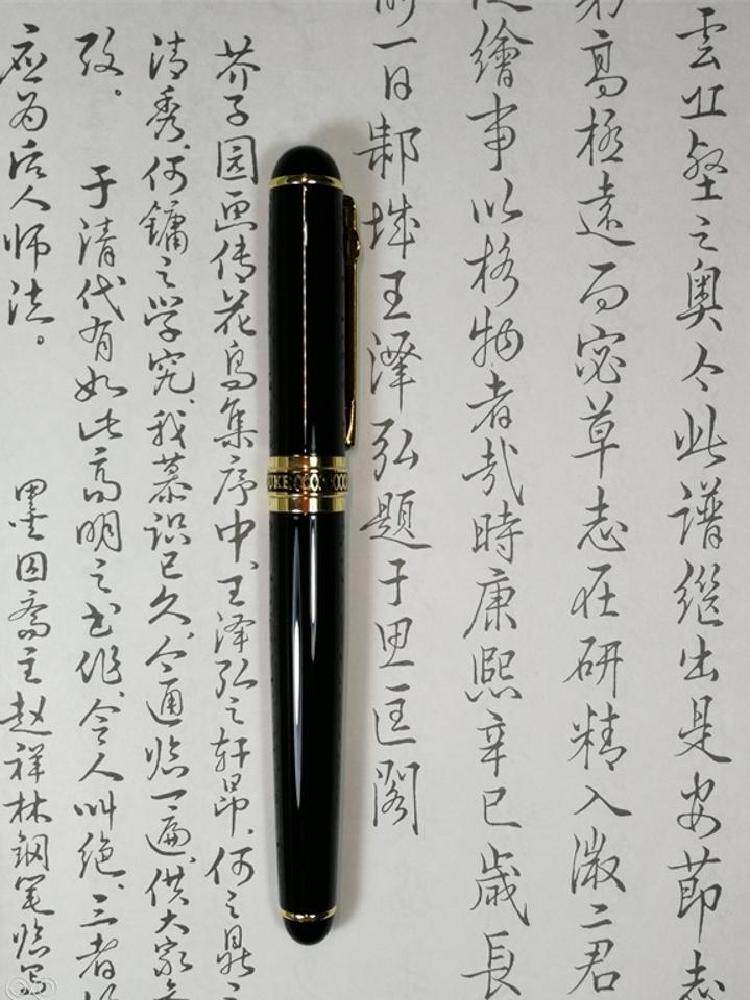 雲丘壑之奥今此譜繼出是安節志
弟高極遠而宓草志在研精入微二君
從繪事以格物者哉時康熙辛巳歲長
前一日邾城王澤弘題于思匡閣
芥子园画传花鸟集序中、王泽弘之轩昂、何之鼎之
清秀、何镛之学究、我慕识已久、今通临一遍、供大家
致。
于清代有如此高明之书作、令人叫绝、三者
应为后人师法。
墨囚斋主赵祥林钢笔临写